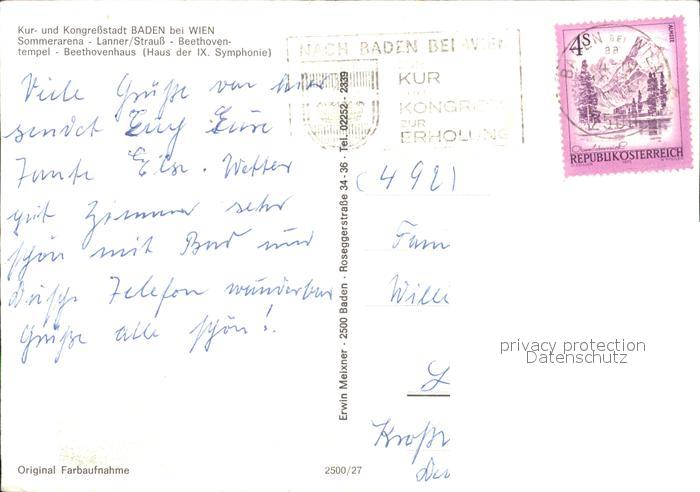 Kur- und Kongreßstadt BADEN bei WIEN
Sommerarena - Lanner/Strauß - Beethoven-
tempel - Beethovenhaus (Haus der IX. Symphonie)
Viele Grüße von hier
sendet Euch Eure
Tante Else. Wetter
gut Zimmer sehr
schön mit Bad und
Dusche Telefon wunderbar
Grüße alle schön!
Erwin Meixner - 2500 Baden - Roseggerstraße 34-36 - Tel. 02252- 2339
NACH BADEN BEI WIEN
KUR
KONGRESS
ZUR
ERHOLUNG
4S
ALMSEE
REPUBLIK ÖSTERREICH
BADEN BEI WIEN
(492)
Fam
Willi
privacy protection
Datenschutz
Original Farbaufnahme
2500/27